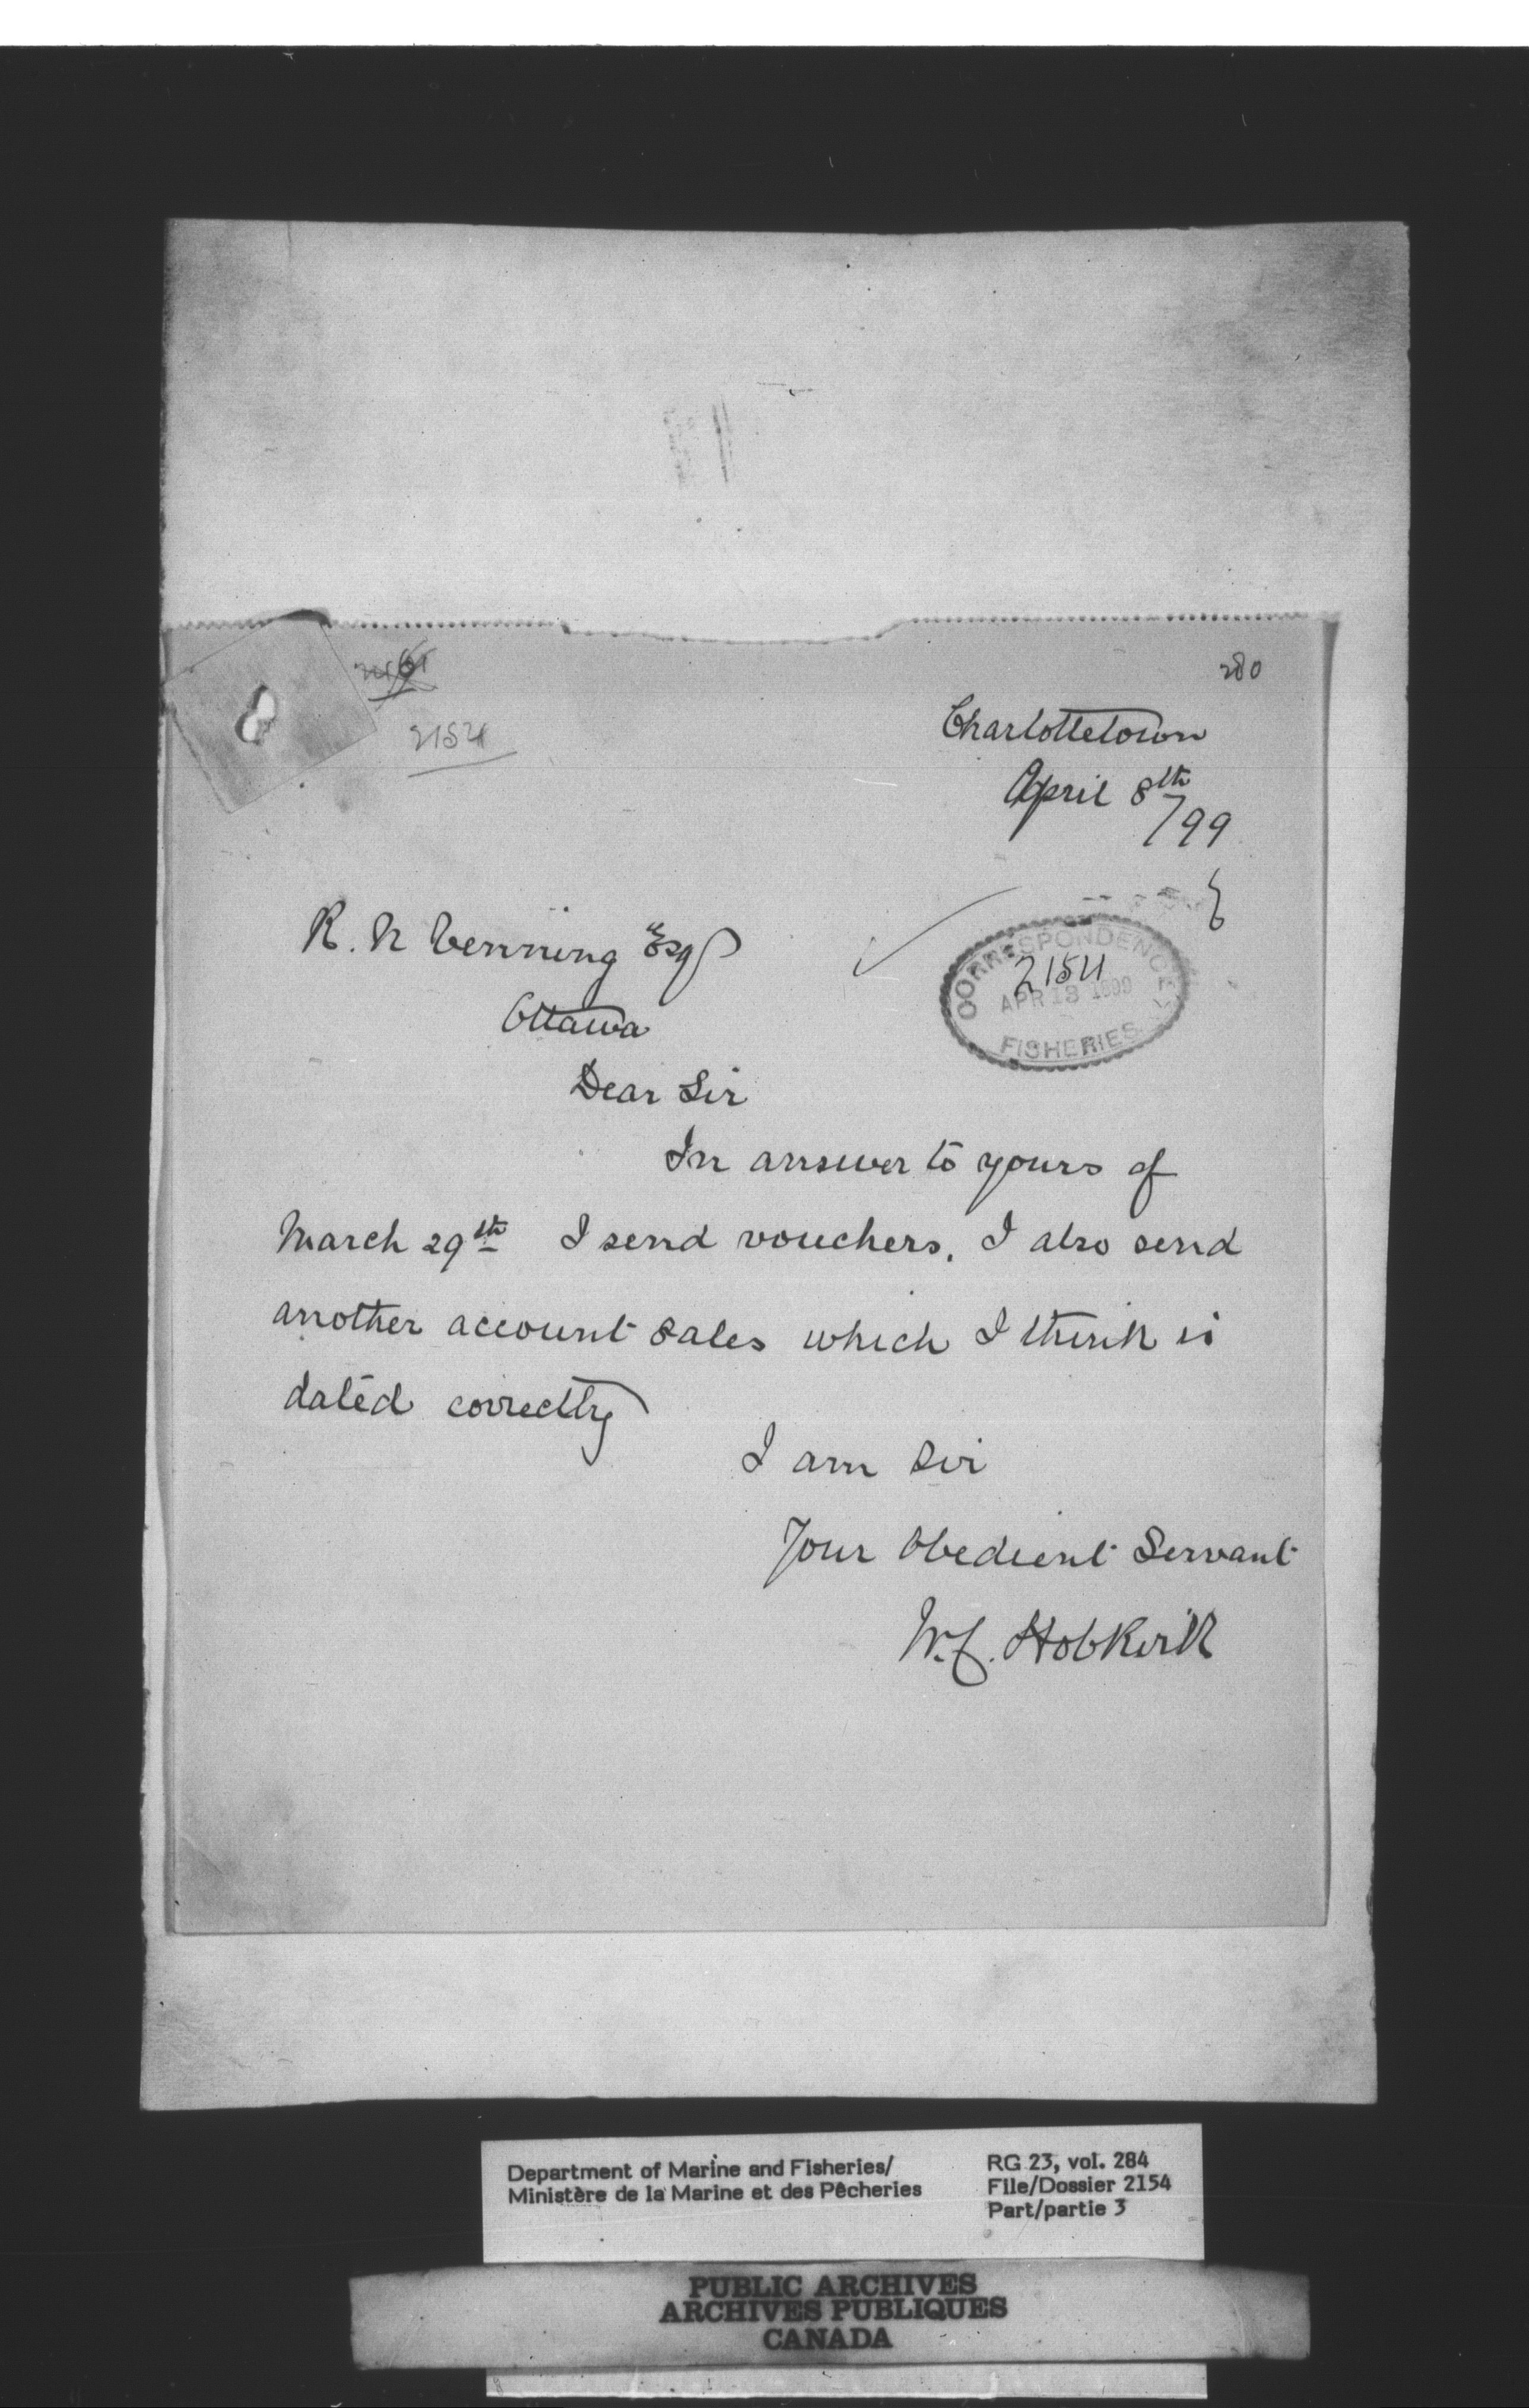 280
2154
Charlottetown
April 8th
/99
R. N Venning Esq
CORRESPONDENCE
2154
APR 13 1899
FISHERIES
Ottawa
Dear Sir
In answer to yours of
March 29th I send vouchers. I also send
another account sales which I think is
dated correctly
I am Sir
Your Obedient Servant
W.C. Hobkirk
Department of Marine and Fisheries/
Ministère de la Marine et des Pêcheries
RG 23, vol. 284
File/Dossier 2154
Part/partie 3
PUBLIC ARCHIVES
ARCHIVES PUBLIQUES
CANADA